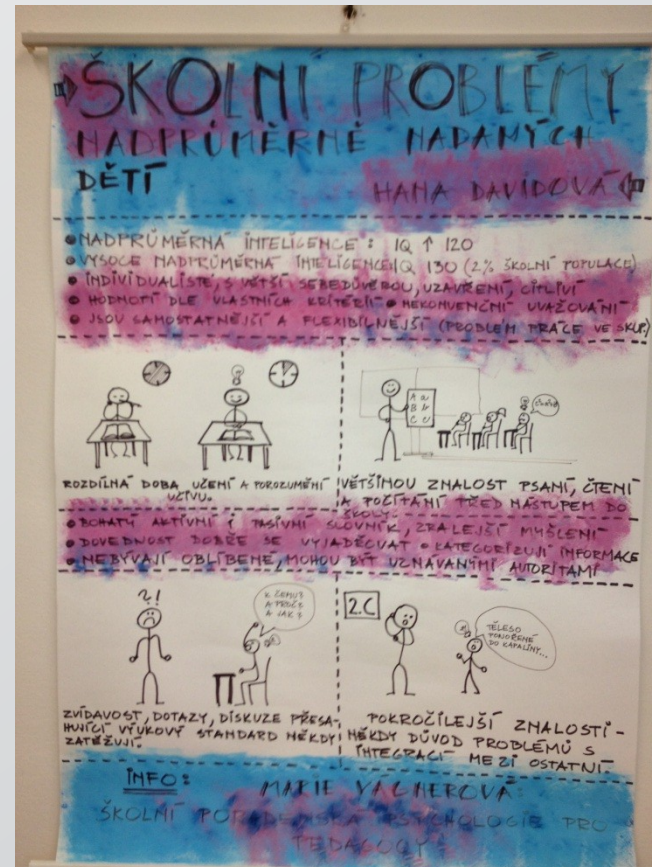 ŠKOLNÍ PROBLÉMY
NADPRŮMĚRNĚ NADANÝCH
DĚTÍ
HANA DAVIDOVÁ
• NADPRŮMĚRNÁ INTELIGENCE: IQ ↑ 120
• VYSOCE NADPRŮMĚRNÁ INTELIGENCE IQ 130 (2% ŠKOLNÍ POPULACE)
• INDIVIDUALISTÉ, S VĚTŠÍ SEBEDŮVĚROU, UZAVŘENÍ, CITLIVÍ
• HODNOTÍ DLE VLASTNÍCH KRITÉRIÍ • NEKONVENČNÍ UVAŽOVÁNÍ
• JSOU SAMOSTATNĚJŠÍ A FLEXIBILNĚJŠÍ (PROBLÉM PRÁCE VE SKUP.)
ROZDÍLNÁ DOBA UČENÍ A POROZUMĚNÍ
UČIVU.
A a
B b
C c
VĚTŠINOU ZNALOST PSANÍ, ČTENÍ
A POČÍTÁNÍ PŘED NÁSTUPEM DO
ŠKOLY.
• BOHATÝ AKTIVNÍ I PASIVNÍ SLOVNÍK, ZRALEJŠÍ MYŠLENÍ
• DOVEDNOST DOBŘE SE VYJADŘOVAT • KATEGORIZUJÍ INFORMACE
• NEBÝVAJÍ OBLÍBENÉ, MOHOU BÝT UZNÁVANÝMI AUTORITAMI
?!
K ČEMU?
A PROČ?
A JAK?
ZVÍDAVOST, DOTAZY, DISKUZE PŘESA-
HUJÍCÍ VÝUKOVÝ STANDARD NĚKDY
ZATĚŽUJÍ.
2.C
TĚLESO
PONOŘENÉ
DO KAPALINY...
POKROČILEJŠÍ ZNALOSTI -
NĚKDY DŮVOD PROBLÉMŮ S
INTEGRACÍ MEZI OSTATNÍ.
INFO:
MARIE VÁGNEROVÁ:
ŠKOLNÍ PORADENSKÁ PSYCHOLOGIE PRO
PEDAGOGY